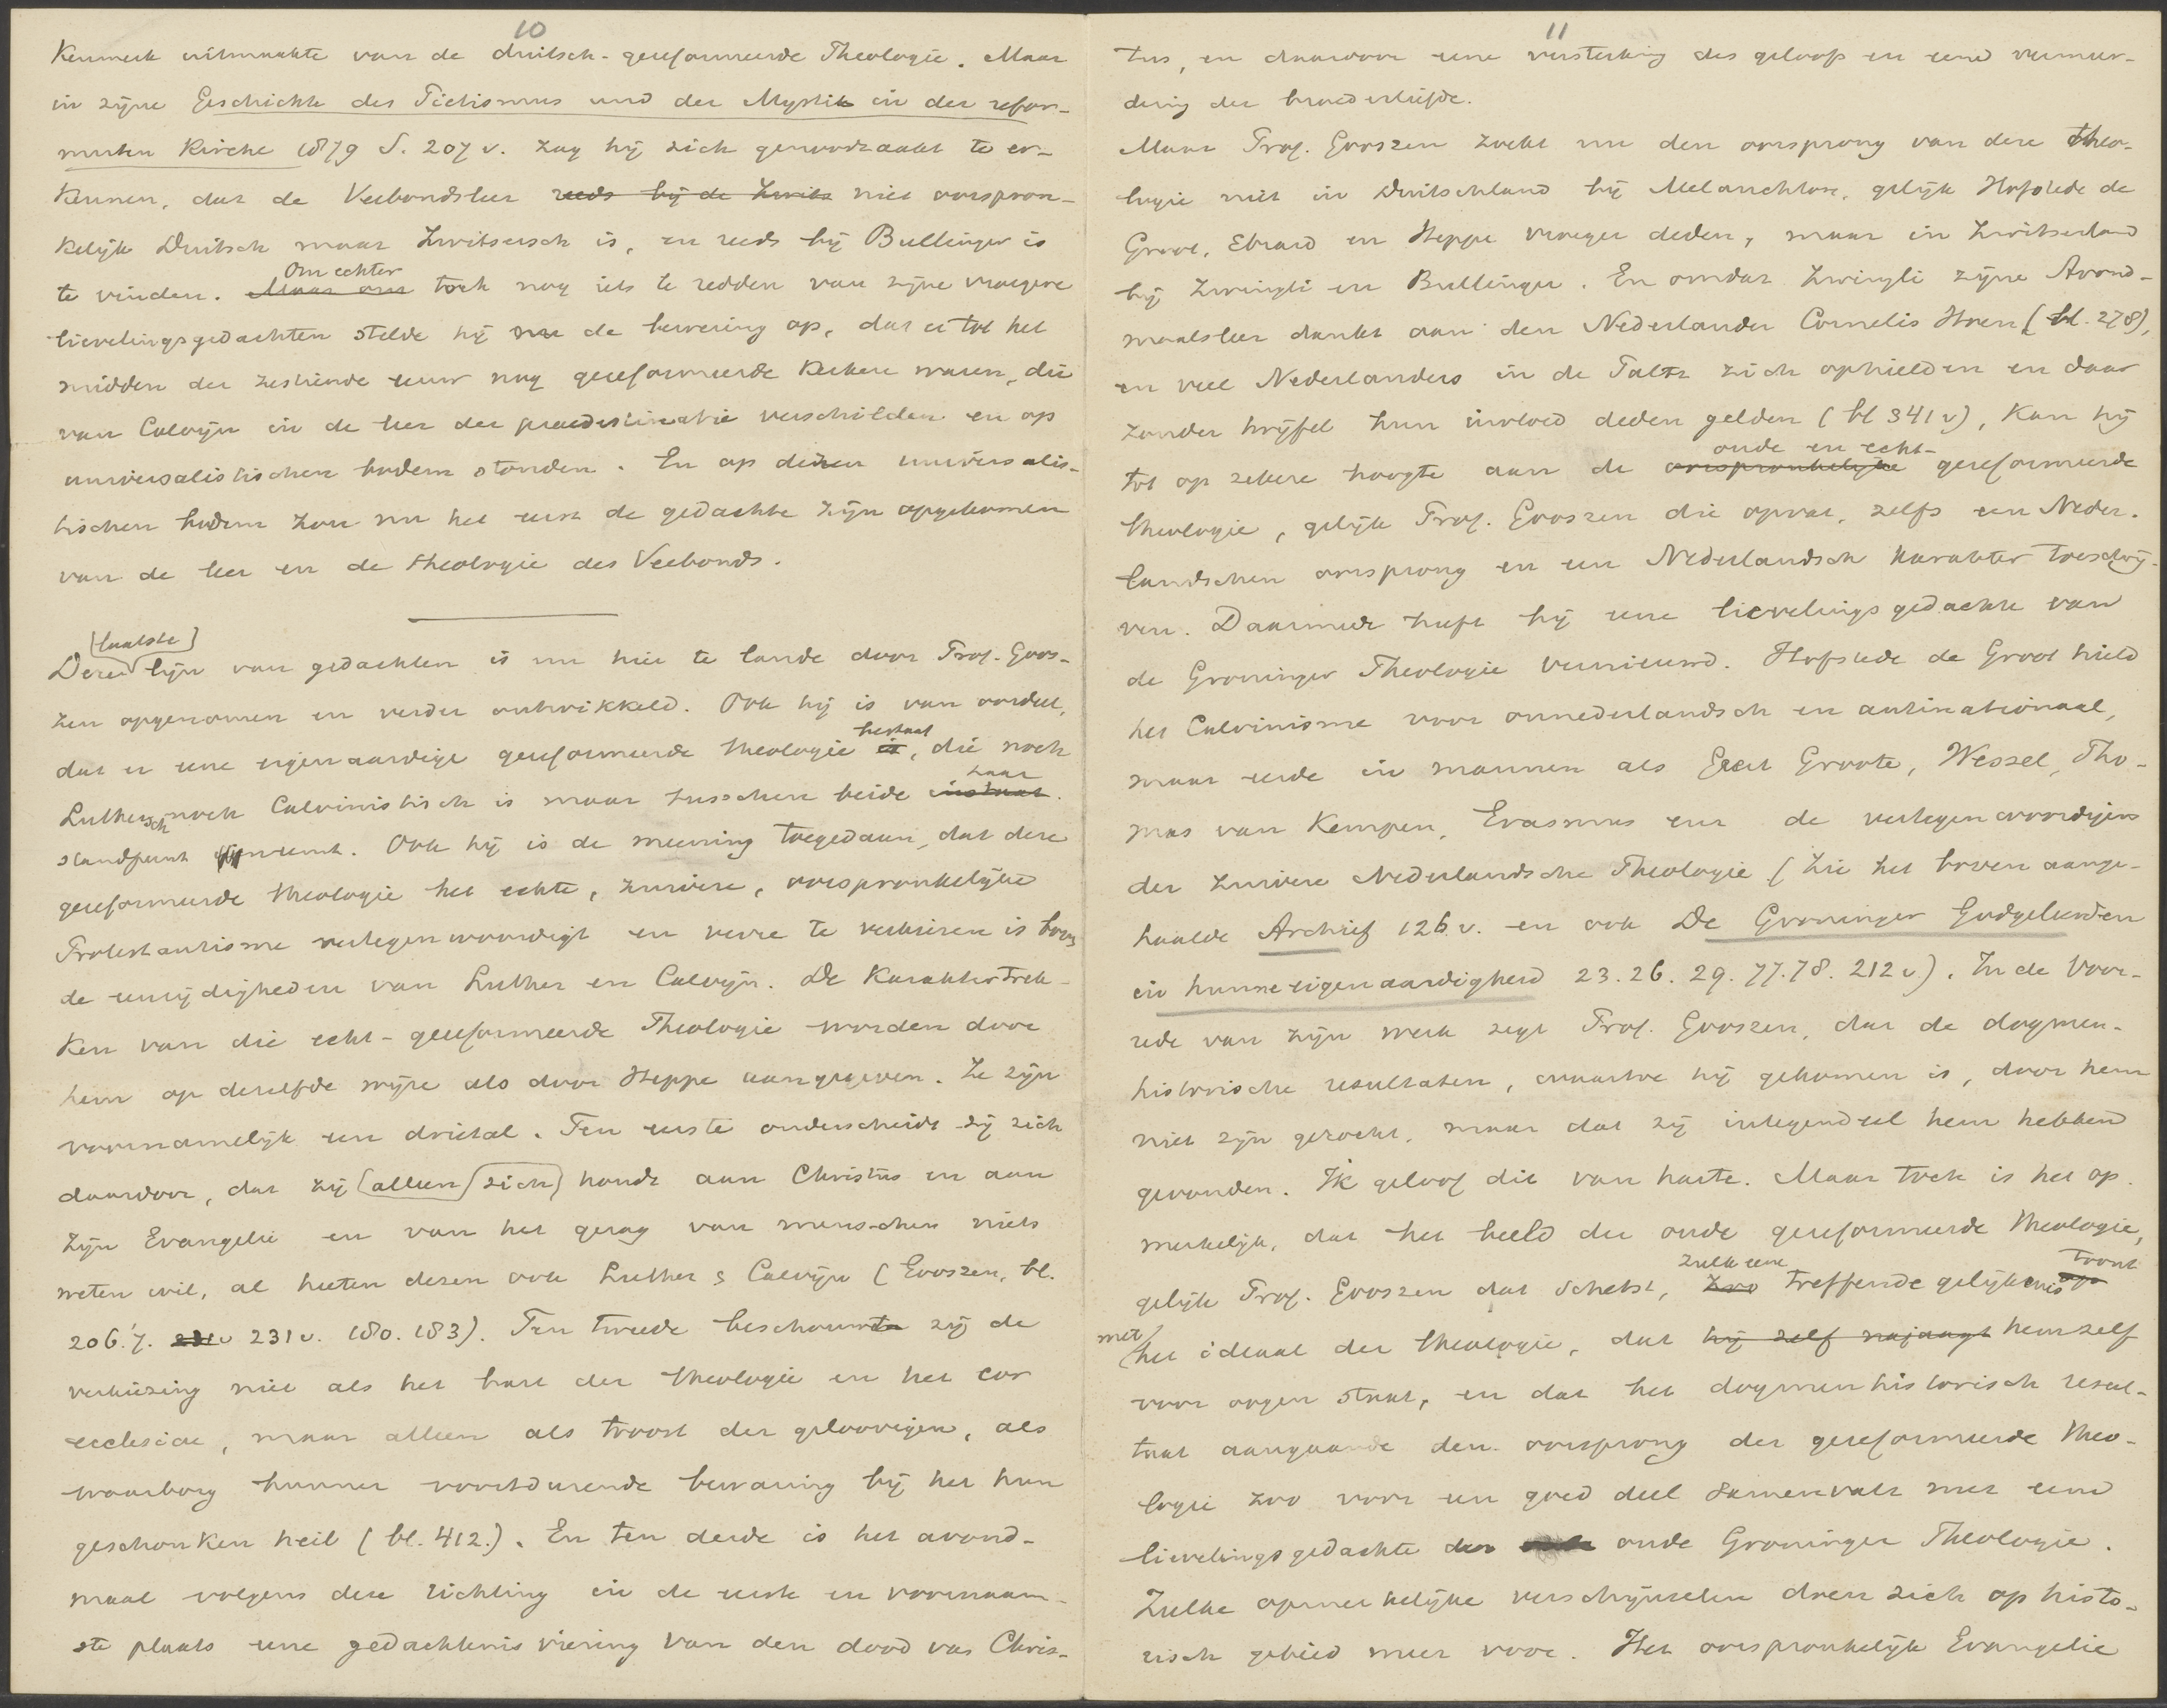 10
Kenmerk uitmaakte van de duitsch-gereformeerde Theologie. Maar
in zijne Geschichte des Pietismus und der Mystik in der refor-
mirten Kirche 1879 S. 207 v. zag hij zich genoodzaakt te er-
kennen, dat de Verbondsleer reeds bij de Zwits niet oorspron-
kelijk Duitsch maar Zwitsersch is, en reeds bij Bullinger is
te vinden. Maar om Om echter toch nog iets te redden van zijne vroegere
lievelingsgedachten stelde hij nu de bewering op, dat er tot het
midden der zestiende eeuw nog gereformeerde Kerken waren, die
van Calvijn in de leer der praedestinatie verschilden en op
universalistischen bodem stonden. En op dezen universalis-
tischen bodem zou nu het eerst de gedachte zijn opgekomen
van de leer en de theologie des Verbonds.
Deze laatste lijn van gedachten is nu hier te lande door Prof. Goos-
zen opgenomen en verder ontwikkeld. Ook hij is van oordeel,
dat er eene eigenaardige gereformeerde theologie is bestaat, die noch
Luthersch noch Calvinistisch is maar tusschen beide instaat haar
standpunt neemt. Ook hij is de meening toegedaan, dat deze
gereformeerde theologie het echte, zuivere, oorspronkelijke
Protestantisme vertegenwoordigt en verre te verkiezen is boven
de eenzijdigheden van Luther en Calvijn. De Karaktertrek-
ken van die echt-gereformeerde Theologie worden door
hem op dezelfde wijze als door Heppe aangegeven. Ze zijn
voornamelijk een drietal. Ten eerste onderscheidt zij zich
daardoor, dat zij alleen zich houdt aan Christus en aan
zijn Evangelie en van het gezag van menschen niets
weten wil, al heeten dezen ook Luther & Calvijn (Gooszen, bl.
206.7. 231 v 231 v. 180. 183). Ten tweede beschouwde zij de
verkiezing niet als het hart der theologie en het cor
ecclesiae, maar alleen als troost der geloovigen, als
waarborg hunner voortdurende bewaring bij het hun
geschonken heil (bl. 412.). En ten derde is het avond-
maal volgens deze richting in de eerste en voornaam-
ste plaats eene gedachtenisviering van den dood van Chris-
11
tus, en daardoor eene versterking des geloofs en eene vermeer-
dering der broederliefde.
Maar Prof. Gooszen zoekt nu den oorsprong van deze theo-
logie niet in Duitschland bij Melanchton, gelijk Hofstede de
Groot, Ebrard en Heppe vroeger deden, maar in Zwitserland
bij Zwingli en Bullinger. En omdat Zwingli zijne Avond-
maalsleer dankt aan den Nederlander Cornelis Hoen (bl. 278),
en veel Nederlanders in de Paltz zich ophielden en daar
zonder twijfel hun invloed deden gelden (bl 341 v), kan hij
tot op zekere hoogte aan de oorspronkelijke oude en echt- gereformeerde
theologie, gelijk Prof. Gooszen die opvat, zelfs een Neder-
landschen oorsprong en een Nederlandsch karakter toeschrij-
ven. Daarmede heeft hij eene lievelingsgedachte van
de Groninger Theologie vernieuwd. Hofstede de Groot hield
het Calvinisme voor onnederlandsch en antinationaal,
maar eerde in mannen als Geert Groote, Wessel, Tho-
mas van Kempen, Erasmus enz de vertegenwoordigers
der zuivere Nederlandsche Theologie (Zie het boven aange-
haalde Archief 126. v. en ook De Groninger Godgeleerden
in hunne eigenaardigheid 23. 26. 29. 77. 78. 212 v). In de Voor-
rede van zijn werk zegt Prof. Gooszen, dat de dogmen-
historische resultaten, waartoe hij gekomen is, door hem
niet zijn gezocht, maar dat zij integendeel hem hebben
gevonden. Ik geloof dit van harte. Maar toch is het op-
merkelijk, dat het beeld der oude gereformeerde theologie,
gelijk Prof. Gooszen dat schetst, zoo zulk eene treffende gelijkenis toont
met het ideaal der theologie, dat hij zelf najaagt hemzelf
voor oogen staat, en dat het dogmenhistorisch resul-
taat aangaande den oorsprong der gereformeerde theo-
logie zoo voor een goed deel samenvalt met eene
lievelingsgedachte der oude Groninger Theologie.
Zulke opmerkelijke verschijnselen doen zich op histo-
risch gebied meer voor. Het oorspronkelijk Evangelie